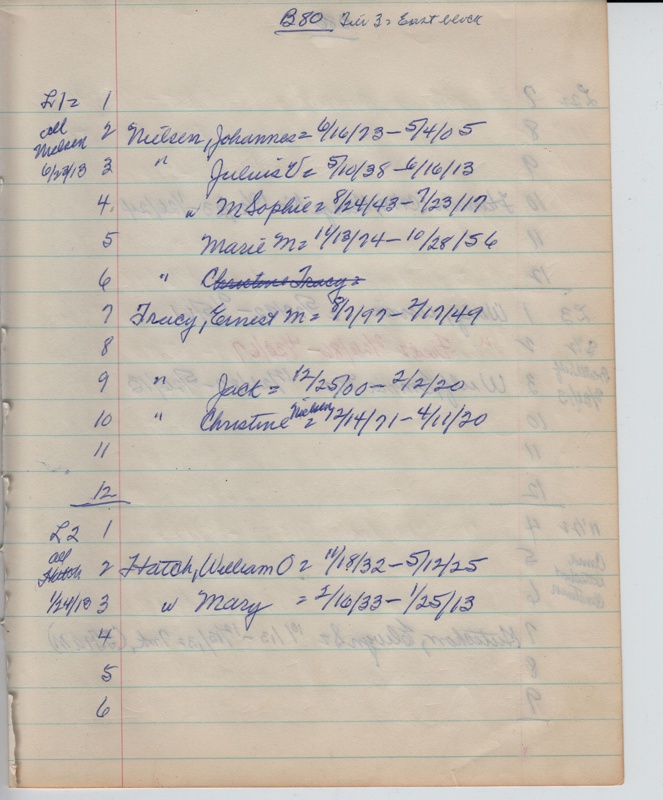 B80 Tier 3 = East block
L1 = 1
all 2 Nielsen, Johannes = 6/16/73 - 5/4/05
Nielsen
6/23/13 3 " Julius V = 5/10/38 - 6/16/13
4. " M Sophie = 8/24/43 - 7/23/17
5 Marie M = 11/13/74 - 10/28/56
6 " Christine Tracy =
7 Tracy, Ernest M = 8/7/97 - 2/17/49
8
9 " Jack = 12/25/00 - 2/2/20
10 " Christine Nielsen = 12/14/71 - 4/11/20
11
12
L2 1
all
Hatch 2 Hatch, William O = 11/18/32 - 5/12/25
1/24/13 3 " Mary = 2/16/33 - 1/25/13
4
5
6